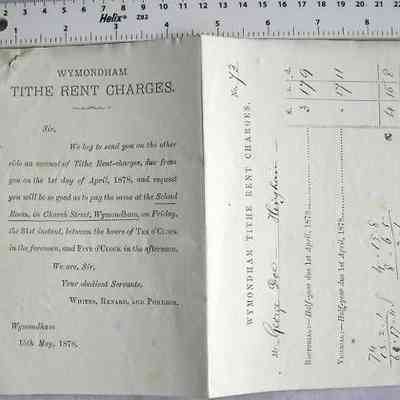 Helix
WYMONDHAM
TITHE RENT CHARGES.
Sir,
We beg to send you on the other
side an account of Tithe Rent-charges, due from
you on the 1st day of April, 1878, and request
you will be so good as to pay the same at the School
Room, in Church Street, Wymondham, on Friday,
the 31st instant, between the hours of TEN O'CLOCK
in the forenoon, and FIVE O'CLOCK in the afternoon.
We are, Sir,
Your obedient Servants,
WHITES, RENARD, AND POMEROY.
Wymondham
15th May, 1878.
No. 72
WYMONDHAM TITHE RENT CHARGES.
Mr George Doe — Hingham —
£ s. d.
RECTORIAL:—Half-year due 1st April, 1878 3 17 9
VICARIAL:—Half-year due 1st April, 1878 " 17 11